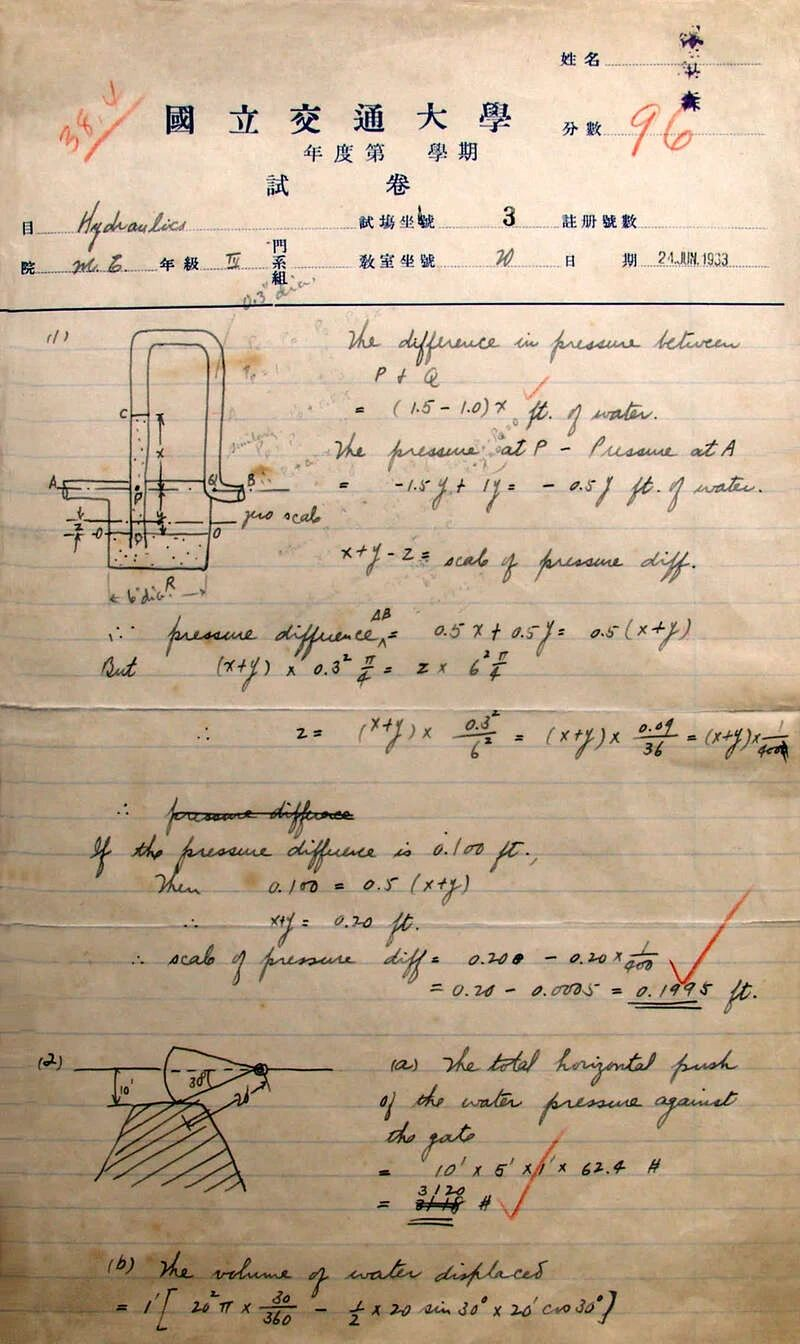 姓名
38.
國立交通大學
分數 96
年度第 學期
試 卷
目 Hydraulics 試場坐號 3 註册號數
院 M.E. 年級 IV 門系組 教室坐號 20 日 期 24.JUN.1933
0.3" dia.
(1)
The difference in pressure between
P + Q
= (1.5 - 1.0)x ft. of water.
C
x
The pressure at P - Pressure at A
A P Q B
= -1.5y + 1y = - 0.5y ft. of water.
zero scale
z O D O
x+y-z = scale of pressure diff.
R
6" dia.
∴ pressure difference AB = 0.5x + 0.5y = 0.5(x+y)
But (x+y) x 0.3² π/4 = z x 6² π/4
∴ z = (x+y) x 0.3²/6² = (x+y) x 0.09/36 = (x+y) x 1/400
∴ pressure difference
If the pressure difference is 0.100 ft.,
Then 0.100 = 0.5 (x+y)
∴ x+y = 0.20 ft.
∴ scale of pressure diff = 0.200 - 0.20 x 1/400
= 0.20 - 0.0005 = 0.1995 ft.
(2)
10' 30° 20'
(a) The total horizontal push
of the water pressure against
the gate
= 10' x 5' x 1' x 62.4 #
= 3120 #
(b) The volume of water displaced
= 1' [ 20² π x 30/360 - 1/2 x 20 sin 30° x 20' cos 30° ]